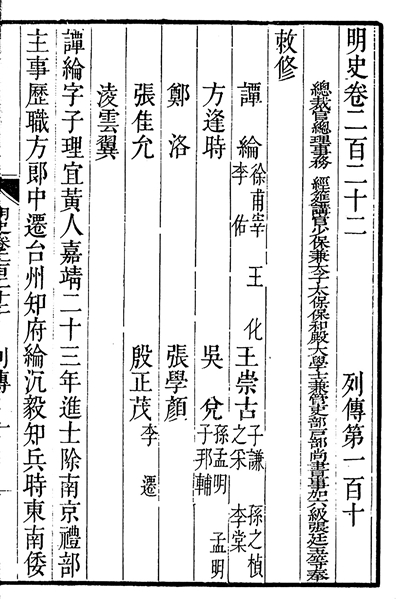 明史卷二百二十二　列傳第一百十
總裁官總理事務　經筵講官少保兼太子太保保和殿大學士兼管吏部戶部尚書事加六級張廷玉等奉
敕修
譚綸 徐甫宰　王化 李佑　王崇古 子謙　孫之楨 之采　李棠
方逢時　吳兌 孫孟明 子邦輔　孟明
鄭洛　張學顏
張佳允　殷正茂 李遷
凌雲翼
譚綸字子理宜黃人嘉靖二十三年進士除南京禮部
主事歷職方郎中遷台州知府綸沉毅知兵時東南倭
列傳